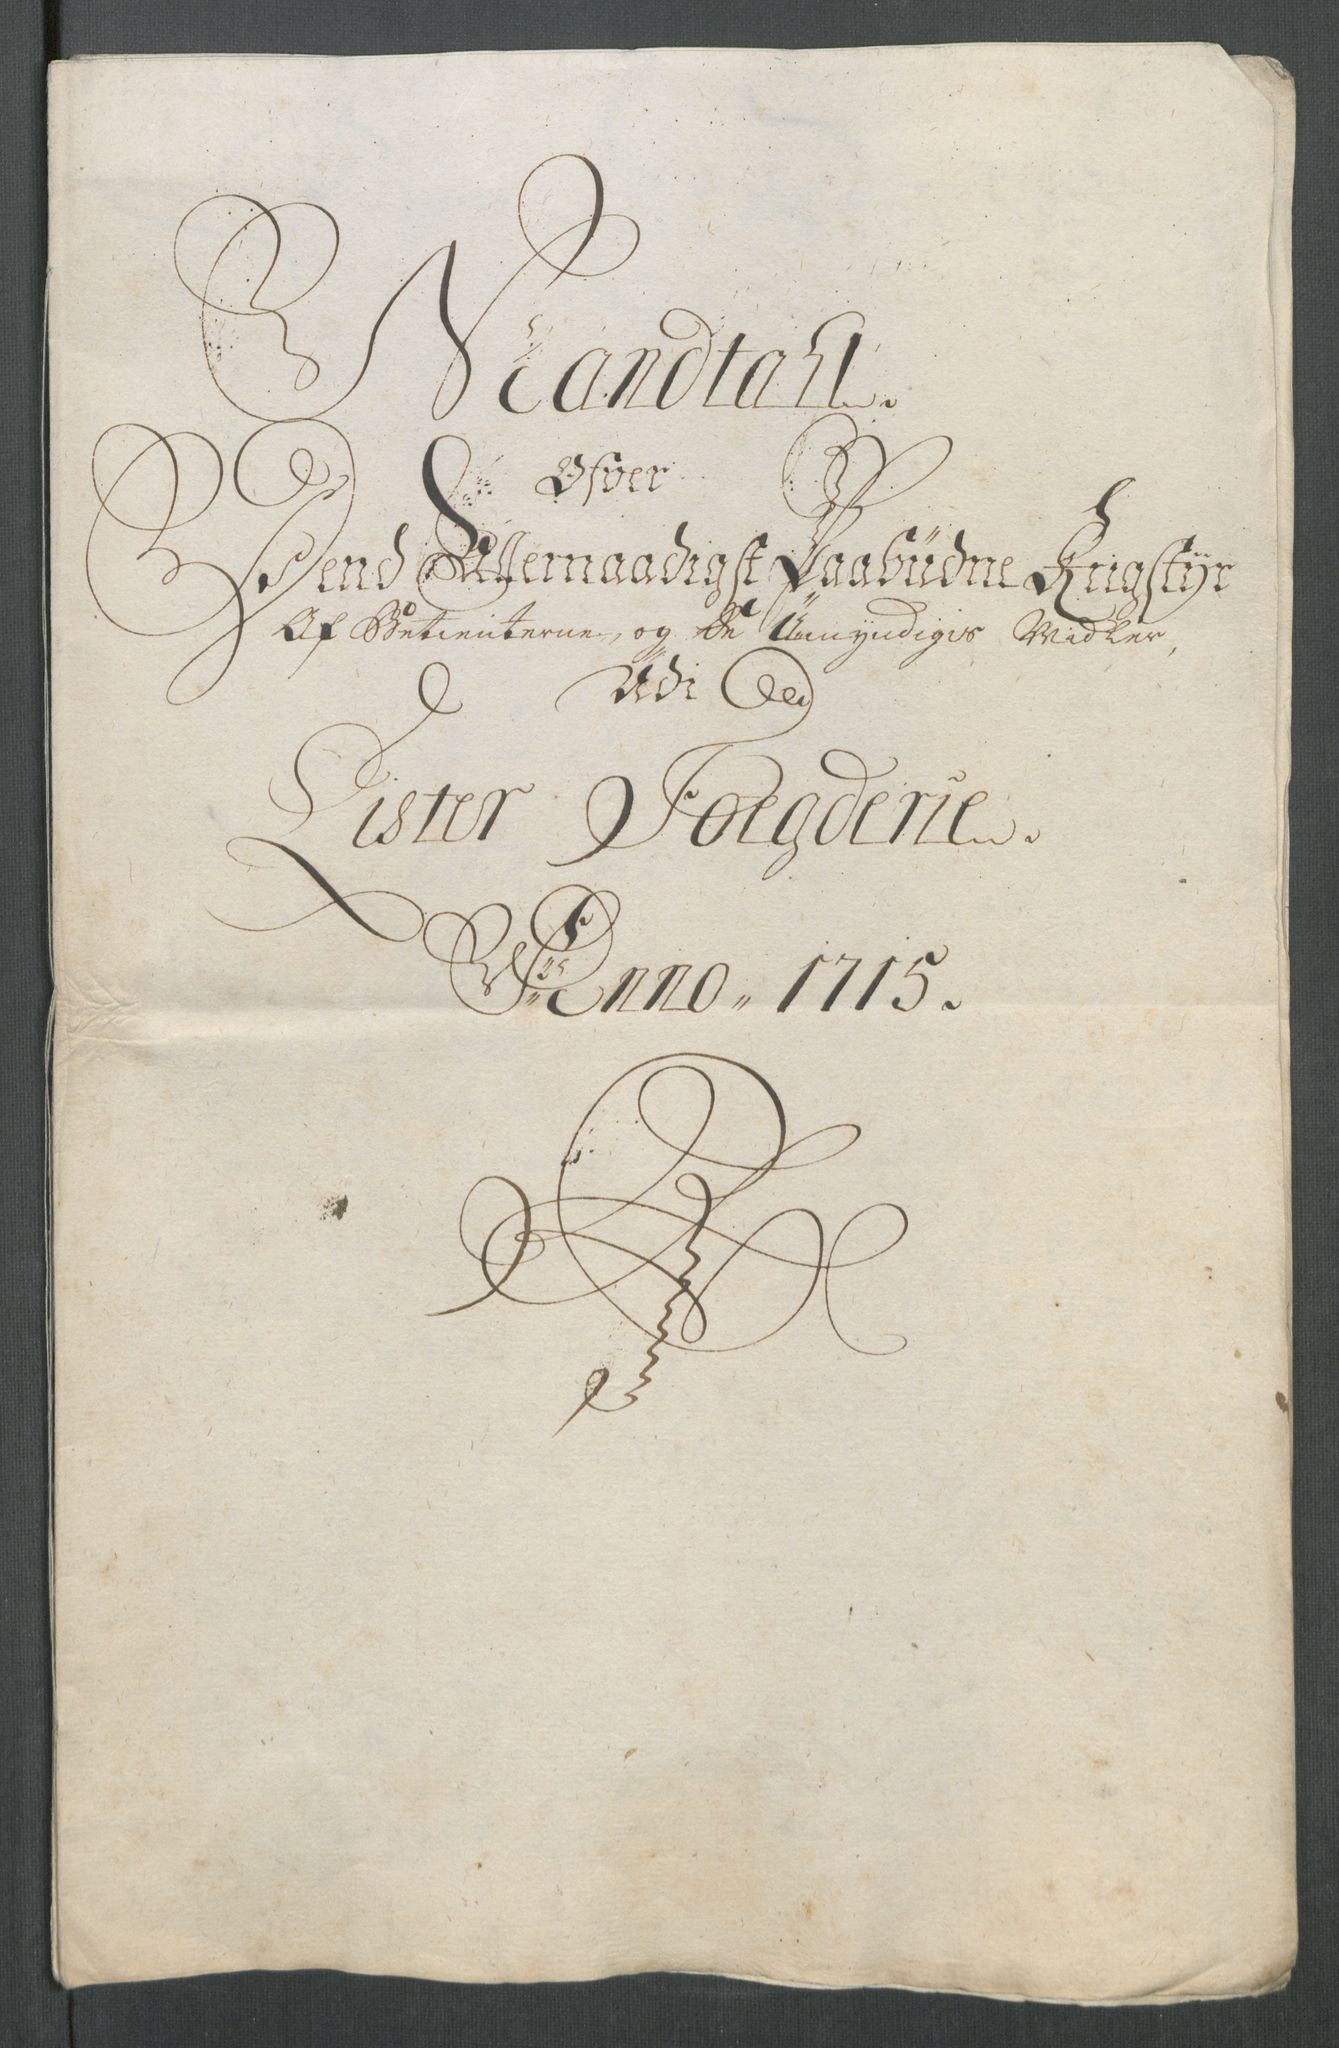 Mandtall.
Ofver
Dend Allernaadigst Paabüdne Krigstÿr
Af Betienterne, og de Umyndigis Midler,
Udi
Lister Foegderie.
Anno 1715.